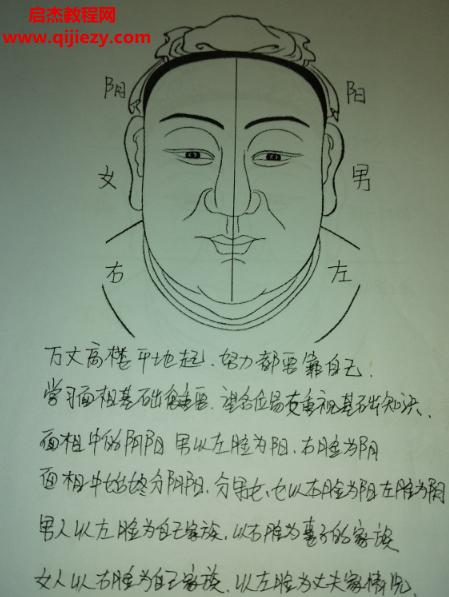 启杰教程网
www.qijiezy.com
阴 阳
女 男
右 左
万丈高楼平地起，努力都要靠自己．
学习面相基础很重要，望各位易友重视基础知识、
面相中的阴阳 男以左脸为阳，右脸为阴
面相中始终分阴阳，分男女，女以右脸为阳左脸为阴
男人以左脸为自己家族，以右脸为妻子的家族
女人以右脸为自己家族，以左脸为丈夫家情况，